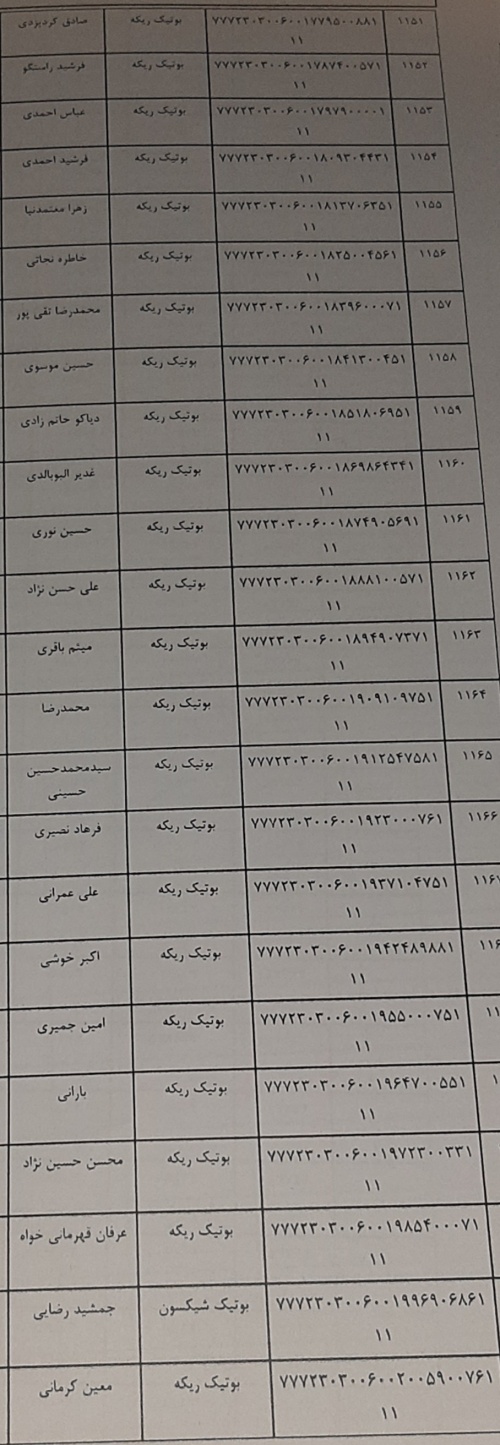 ۱۱۵۱ ۷۷۷۲۳۰۳۰۰۶۰۰۱۷۷۹۵۰۰۸۸۱ بوتیک ریکه صادق کردیزدی
۱۱
۱۱۵۲ ۷۷۷۲۳۰۳۰۰۶۰۰۱۷۸۷۴۰۰۵۷۱ بوتیک ریکه فرشید راستگو
۱۱
۱۱۵۳ ۷۷۷۲۳۰۳۰۰۶۰۰۱۷۹۷۹۰۰۰۰۱ بوتیک ریکه عباس احمدی
۱۱
۱۱۵۴ ۷۷۷۲۳۰۳۰۰۶۰۰۱۸۰۹۳۰۴۴۳۱ بوتیک ریکه فرشید احمدی
۱۱
۱۱۵۵ ۷۷۷۲۳۰۳۰۰۶۰۰۱۸۱۳۷۰۶۳۵۱ بوتیک ریکه زهرا معتمدنیا
۱۱
۱۱۵۶ ۷۷۷۲۳۰۳۰۰۶۰۰۱۸۲۵۰۰۴۵۶۱ بوتیک ریکه خاطره نجاتی
۱۱
۱۱۵۷ ۷۷۷۲۳۰۳۰۰۶۰۰۱۸۳۹۶۰۰۰۷۱ بوتیک ریکه محمدرضا تقی پور
۱۱
۱۱۵۸ ۷۷۷۲۳۰۳۰۰۶۰۰۱۸۴۱۳۰۰۴۵۱ بوتیک ریکه حسین موسوی
۱۱
۱۱۵۹ ۷۷۷۲۳۰۳۰۰۶۰۰۱۸۵۱۸۰۶۹۵۱ بوتیک ریکه دیاکو حاتم زادی
۱۱
۱۱۶۰ ۷۷۷۲۳۰۳۰۰۶۰۰۱۸۶۹۸۶۴۳۴۱ بوتیک ریکه غدیر البوبالدی
۱۱
۱۱۶۱ ۷۷۷۲۳۰۳۰۰۶۰۰۱۸۷۴۹۰۵۶۹۱ بوتیک ریکه حسین نوری
۱۱
۱۱۶۲ ۷۷۷۲۳۰۳۰۰۶۰۰۱۸۸۸۱۰۰۵۷۱ بوتیک ریکه علی حسن نژاد
۱۱
۱۱۶۳ ۷۷۷۲۳۰۳۰۰۶۰۰۱۸۹۴۹۰۷۳۷۱ بوتیک ریکه میثم باقری
۱۱
۱۱۶۴ ۷۷۷۲۳۰۳۰۰۶۰۰۱۹۰۹۱۰۹۷۵۱ بوتیک ریکه محمدرضا
۱۱
۱۱۶۵ ۷۷۷۲۳۰۳۰۰۶۰۰۱۹۱۲۵۴۷۵۸۱ بوتیک ریکه سیدمحمدحسین
۱۱ حسینی
۱۱۶۶ ۷۷۷۲۳۰۳۰۰۶۰۰۱۹۲۳۰۰۰۷۶۱ بوتیک ریکه فرهاد نصیری
۱۱
۱۱۶۷ ۷۷۷۲۳۰۳۰۰۶۰۰۱۹۳۷۱۰۴۷۵۱ بوتیک ریکه علی عمرانی
۱۱
۱۱۶ ۷۷۷۲۳۰۳۰۰۶۰۰۱۹۴۲۴۸۹۸۸۱ بوتیک ریکه اکبر خوشی
۱۱
۱۱ ۷۷۷۲۳۰۳۰۰۶۰۰۱۹۵۵۰۰۰۷۵۱ بوتیک ریکه امین جمیری
۱۱
۱ ۷۷۷۲۳۰۳۰۰۶۰۰۱۹۶۴۷۰۰۵۵۱ بوتیک ریکه بارانی
۱۱
۷۷۷۲۳۰۳۰۰۶۰۰۱۹۷۲۳۰۰۳۳۱ بوتیک ریکه محسن حسین نژاد
۱۱
۷۷۷۲۳۰۳۰۰۶۰۰۱۹۸۵۴۰۰۰۷۱ بوتیک ریکه عرفان قهرمانی خواه
۱۱
۷۷۷۲۳۰۳۰۰۶۰۰۱۹۹۶۹۰۶۸۶۱ بوتیک شیکسون جمشید رضایی
۱۱
۷۷۷۲۳۰۳۰۰۶۰۰۲۰۰۵۹۰۰۷۶۱ بوتیک ریکه معین کرمانی
۱۱